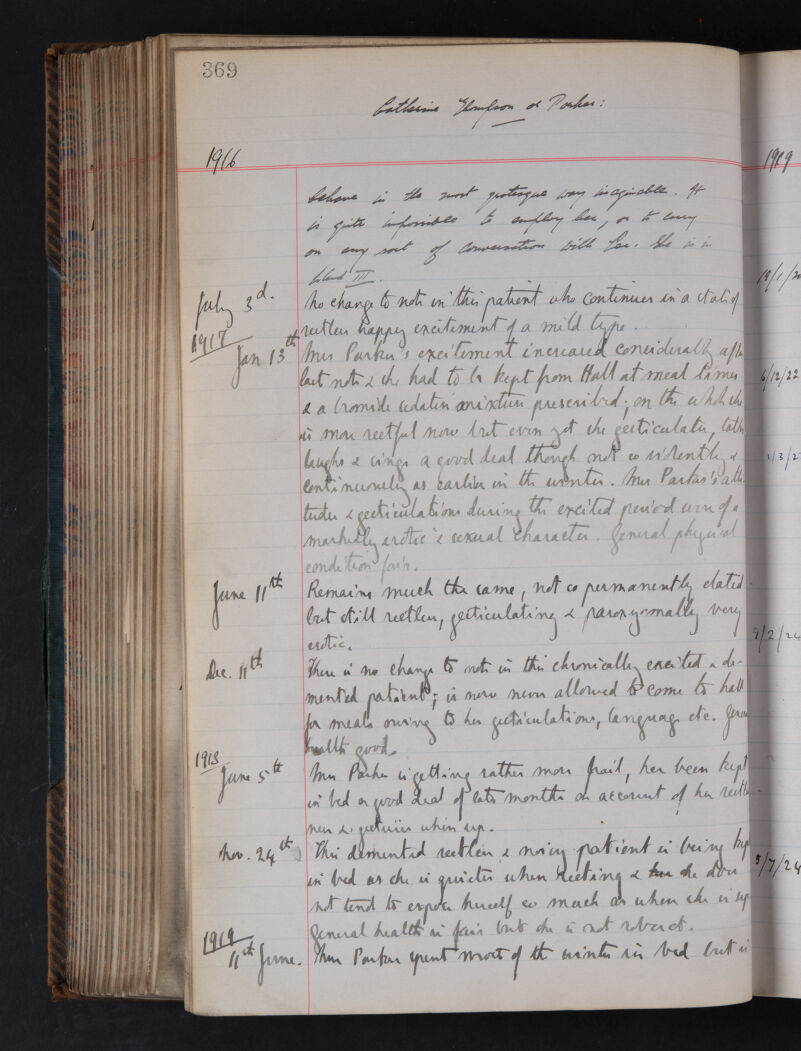 369
Catherine Thompson or Parker:
1916
1919
behave in the most grotesque way imaginable. It
is quite impossible to employ her, or to carry
on any sort of conversation with her. She is in
Ward III.
July 3d. No change to note in this patient who continues in a state of
restless happy excitement of a mild type.
1917
Jan 13th Mrs Parker's excitement increased considerably after
last note & she had to be kept from Hall at meal times
& a bromide sedative mixture prescribed; on the whole she
is more restful now but even yet she gesticulates, talks
laughs & sings a good deal though not so violently &
continuously as earlier in the winter. Mrs Parker's atti-
tudes & gesticulations during the excited period were of a
markedly erotic & sexual character. General physical
condition fair.
June 11th Remains much the same, not so permanently elated
but still restless, gesticulating & paroxysmally very
erotic.
Dec. 11th There is no change to note in this chronically excited & de-
mented patient; is now never allowed to come to hall
for meals owing to her gesticulations, language etc. General
health good.
1918
June 5th Mrs Parker is getting rather more frail, has been kept
in bed a good deal of late months on account of her restless-
ness & when up.
Nov. 24th This demented restless & noisy patient is being kept
in bed as she is quieter when resting & she does
not tend to expose herself so much as when she is up
General health is fair but she is not robust.
1919
11th June. Mrs Parker spent most of the winter in bed but is
6/12/22
9/2/24
5/7/24